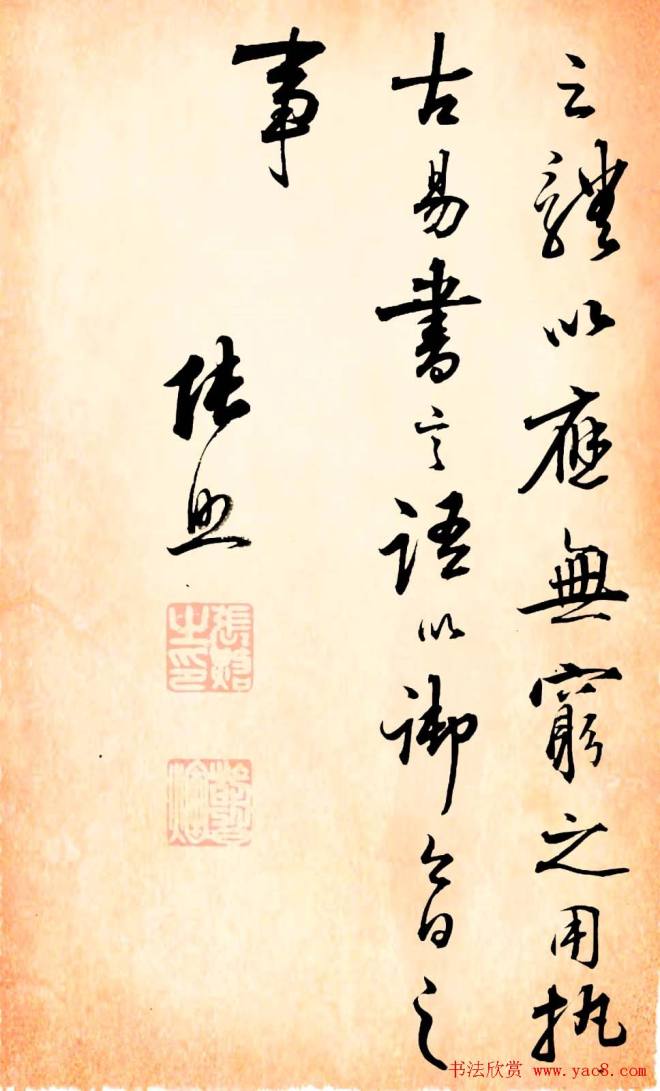 之體以應無窮之用執
古易書之語以御今日之
事
張照
張照之印
书法欣赏 www.yac8.com